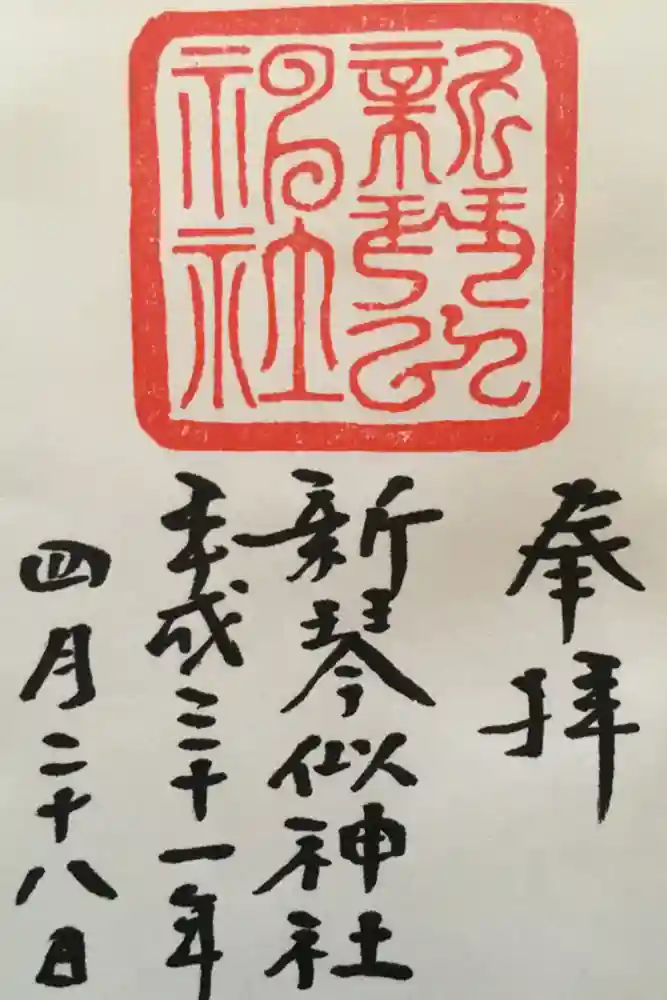 新琴似
神社
奉拝
新琴似神社
平成三十一年
四月二十八日